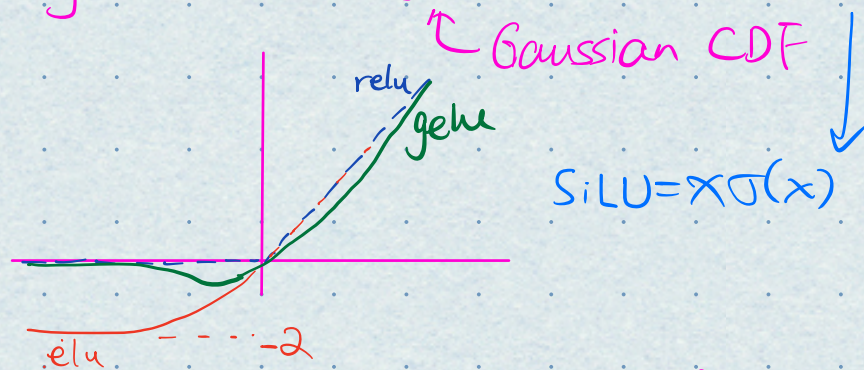 Gaussian CDF
relu
gelu
SiLU=xσ(x)
-2
elu